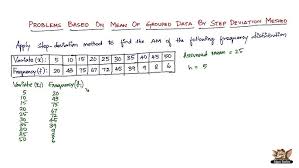 PROBLEMS BASED ON MEAN OF GROUPED DATA BY STEP DEVIATION METHOD
Apply step-deviation method to find the AM of the following frequency distribution
Variate (x) : 5 10 15 20 25 30 35 40 45 50
Frequency (f) : 20 43 75 67 72 45 39 9 8 6
Assumed mean = 25
h = 5
Variate (xi) Frequency (fi)
5 20
10 43
15 75
20 67
25 72
30 45
35 39
40 9
45 8
50 6